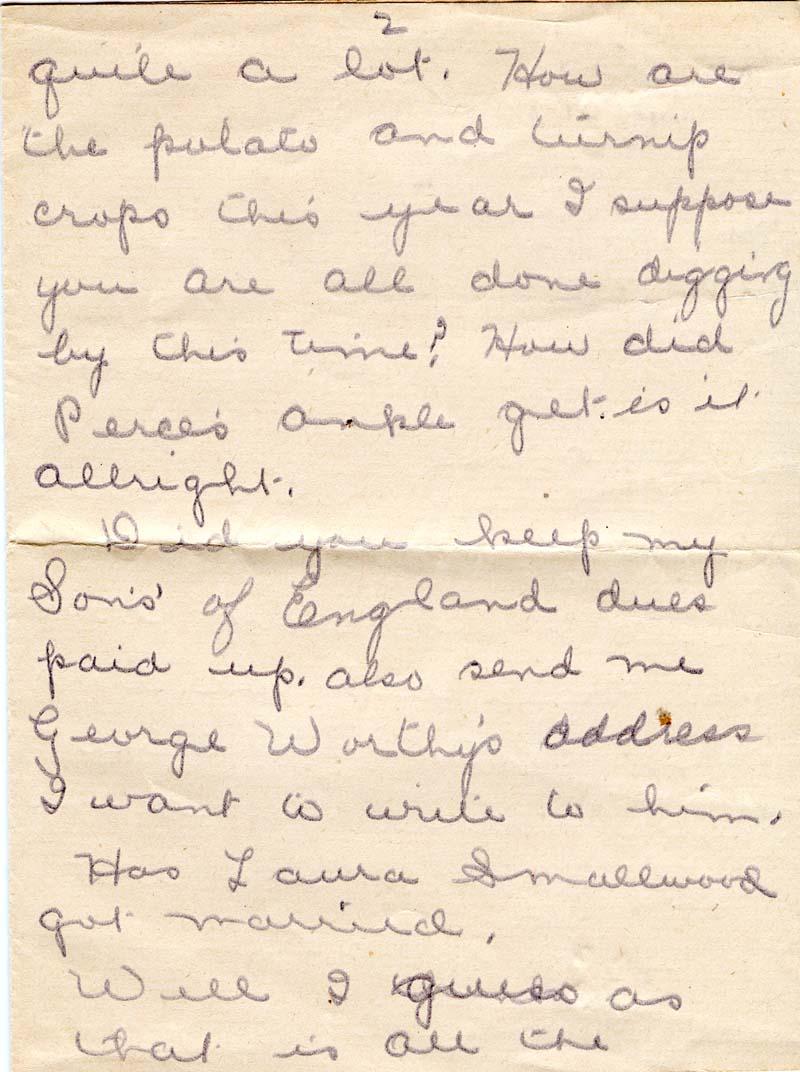 2
quite a lot. How are
the potato and turnip
crops this year I suppose
you are all done digging
by this time? How did
Perce's ankle get. is it
allright.
Did you keep my
Sons' of England dues
paid up. also send me
George Worthy's address
I want to write to him.
Has Laura Smallwood
got married.
Well I guess as
that is all the